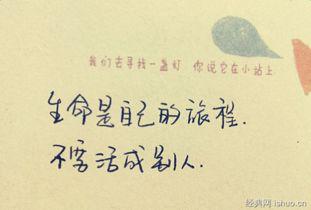 我们去寻找一盏灯 你说它在小站上
生命是自己的旅程.
不要活成别人.
经典网 ishuo.cn